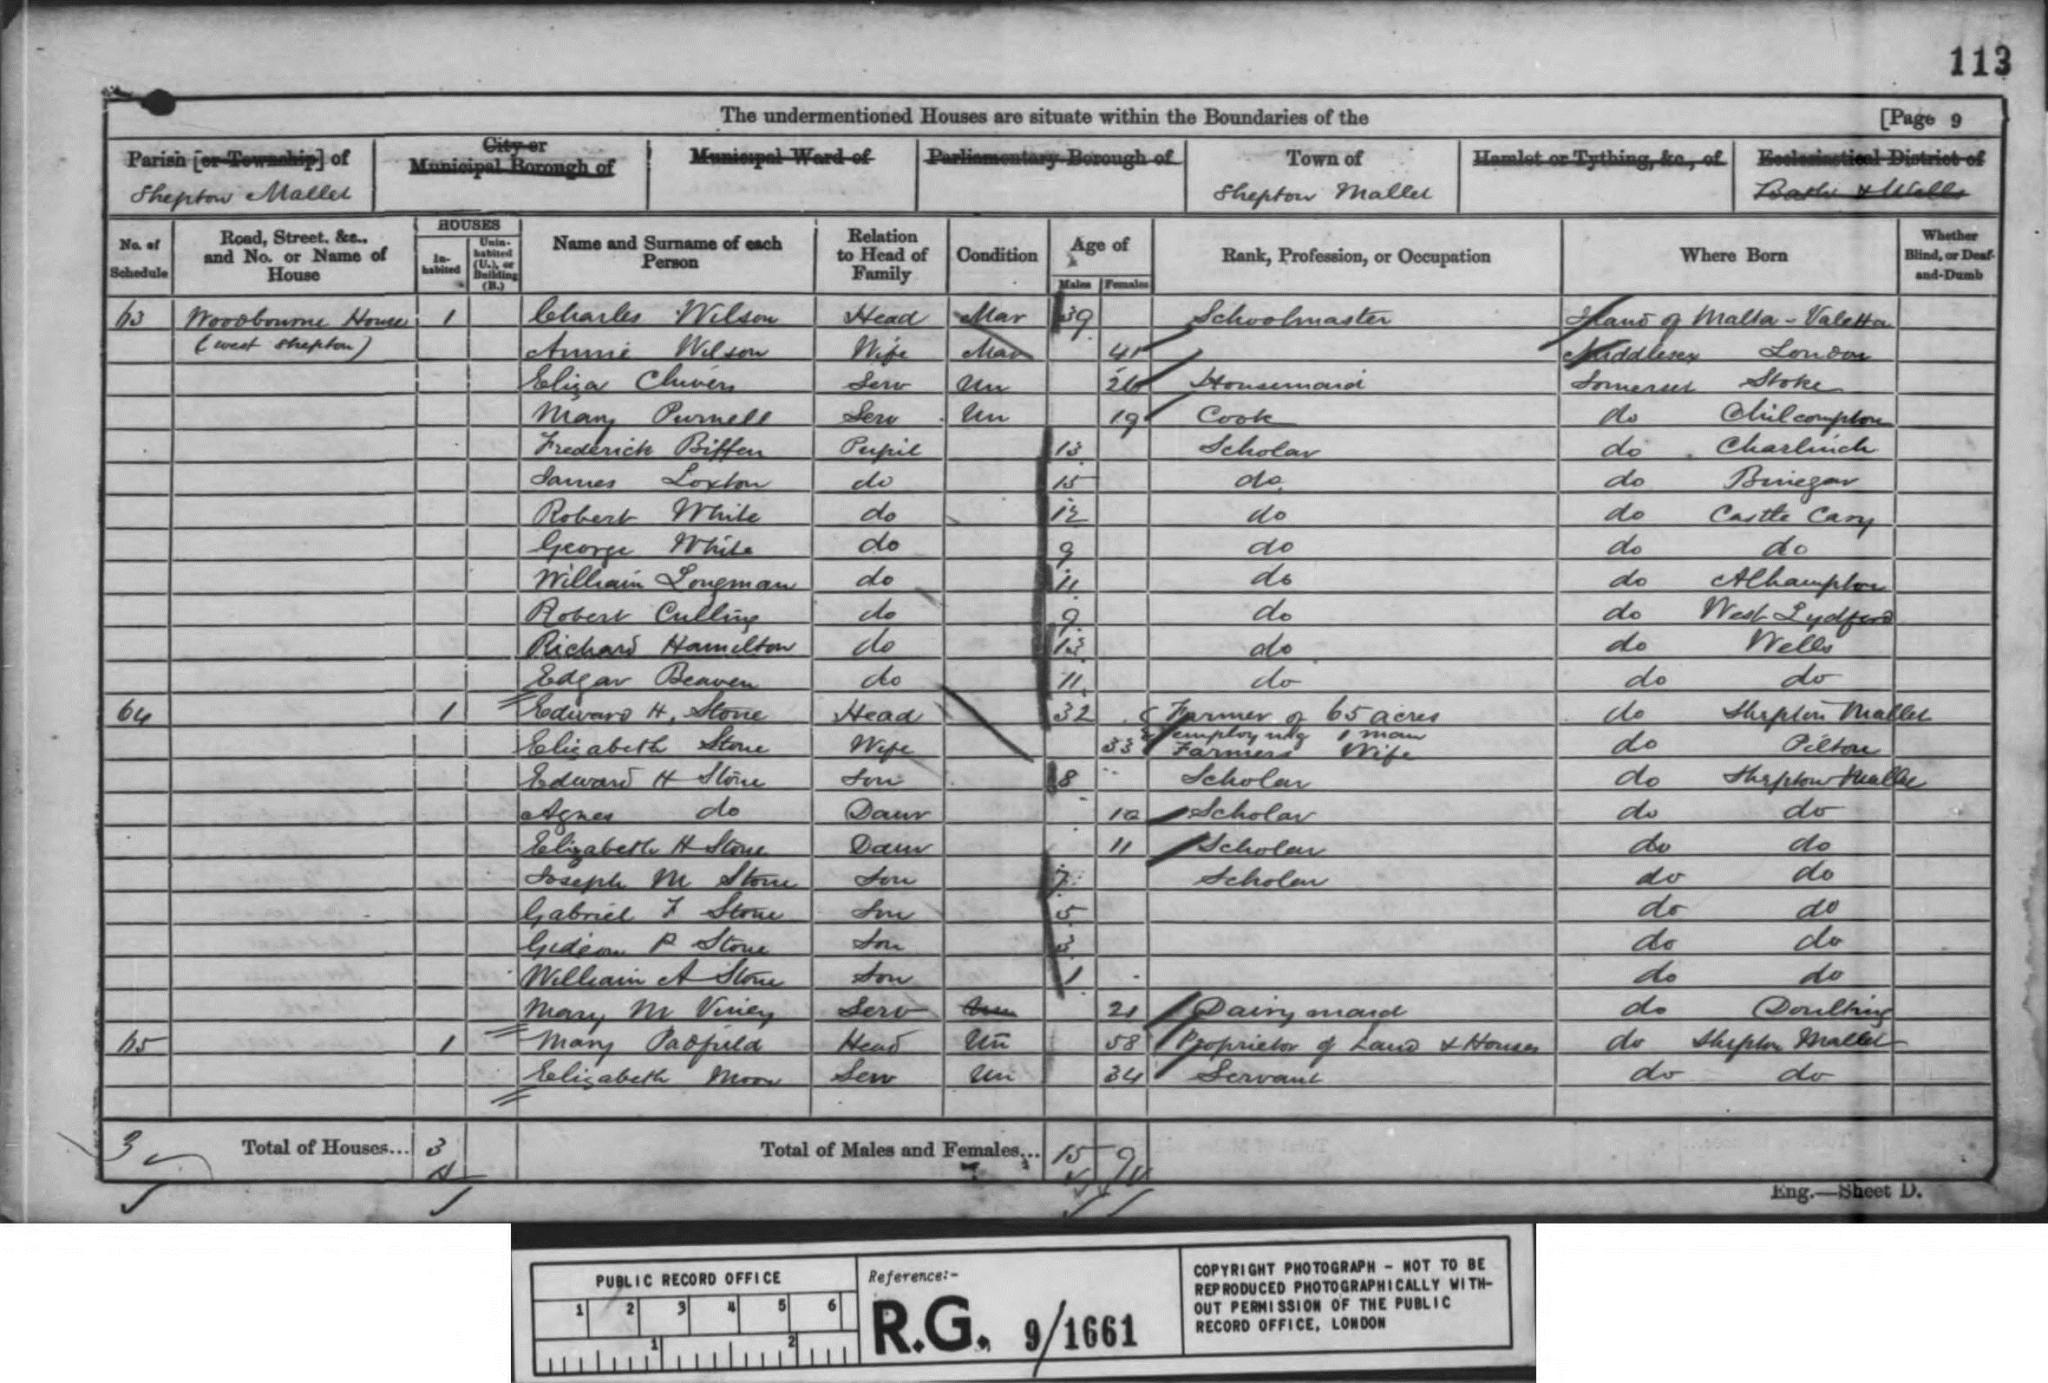 113
The undermentioned Houses are situate within the Boundaries of the [Page 9
Parish [or Township] of City or Municipal Borough of Municipal Ward of Parliamentary Borough of Town of Hamlet or Tything, &c., of Ecclesiastical District of
Shepton Mallet Shepton Mallet Bath & Wells
No. of Schedule Road, Street, &c., and No. or Name of House HOUSES Inhabited Uninhabited (U.), or Building (B.) Name and Surname of each Person Relation to Head of Family Condition Age of Males Females Rank, Profession, or Occupation Where Born Whether Blind, or Deaf-and-Dumb
63 Woodbourne House 1 Charles Wilson Head Mar 39 Schoolmaster Island of Malta - Valetta
(West Shepton) Annie Wilson Wife Mar 41 Middlesex London
Eliza Chivers Serv Un 26 Housemaid Somerset Stoke
Mary Purnell Serv Un 19 Cook do Chilcompton
Frederick Biffen Pupil 13 Scholar do Charlinch
James Loxton do 15 do do Binegar
Robert White do 12 do do Castle Cary
George White do 9 do do do
William Longman do 11 do do Alhampton
Robert Culling do 9 do do West Lydford
Richard Hamilton do 13 do do Wells
Edgar Beaven do 11 do do do
64 1 Edward H. Stone Head 32 Farmer of 65 acres do Shepton Mallet
employing 1 man
Elizabeth Stone Wife 33 Farmers Wife do Pilton
Edward H Stone Son 8 Scholar do Shepton Mallet
Agnes do Daur 10 Scholar do do
Elizabeth H Stone Daur 11 Scholar do do
Joseph M Stone Son 7 Scholar do do
Gabriel F Stone Son 5 do do
Gideon P Stone Son 3 do do
William A Stone Son 1 do do
Mary M Viney Serv Un 21 Dairymaid do Doulting
65 1 Mary Padfield Head Un 58 Proprietor of Land & Houses do Shepton Mallet
Elizabeth Moon Serv Un 34 Servant do do
3 Total of Houses... 3 Total of Males and Females... 15 9
Eng.—Sheet D.
PUBLIC RECORD OFFICE
1 2 3 4 5 6
1 2
Reference:-
R.G. 9/1661
COPYRIGHT PHOTOGRAPH - NOT TO BE
REPRODUCED PHOTOGRAPHICALLY WITH-
OUT PERMISSION OF THE PUBLIC
RECORD OFFICE, LONDON